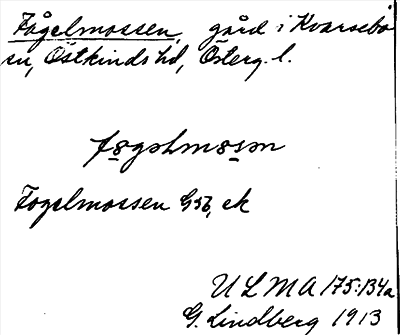 Fågelmossen, gård i Kvarsebo
sn, Östkinds hd, Österg. l.
fo̱gəlmo̱sən
Fogelmossen G56, ek
ULMA 175:134a
G. Lindberg 1913